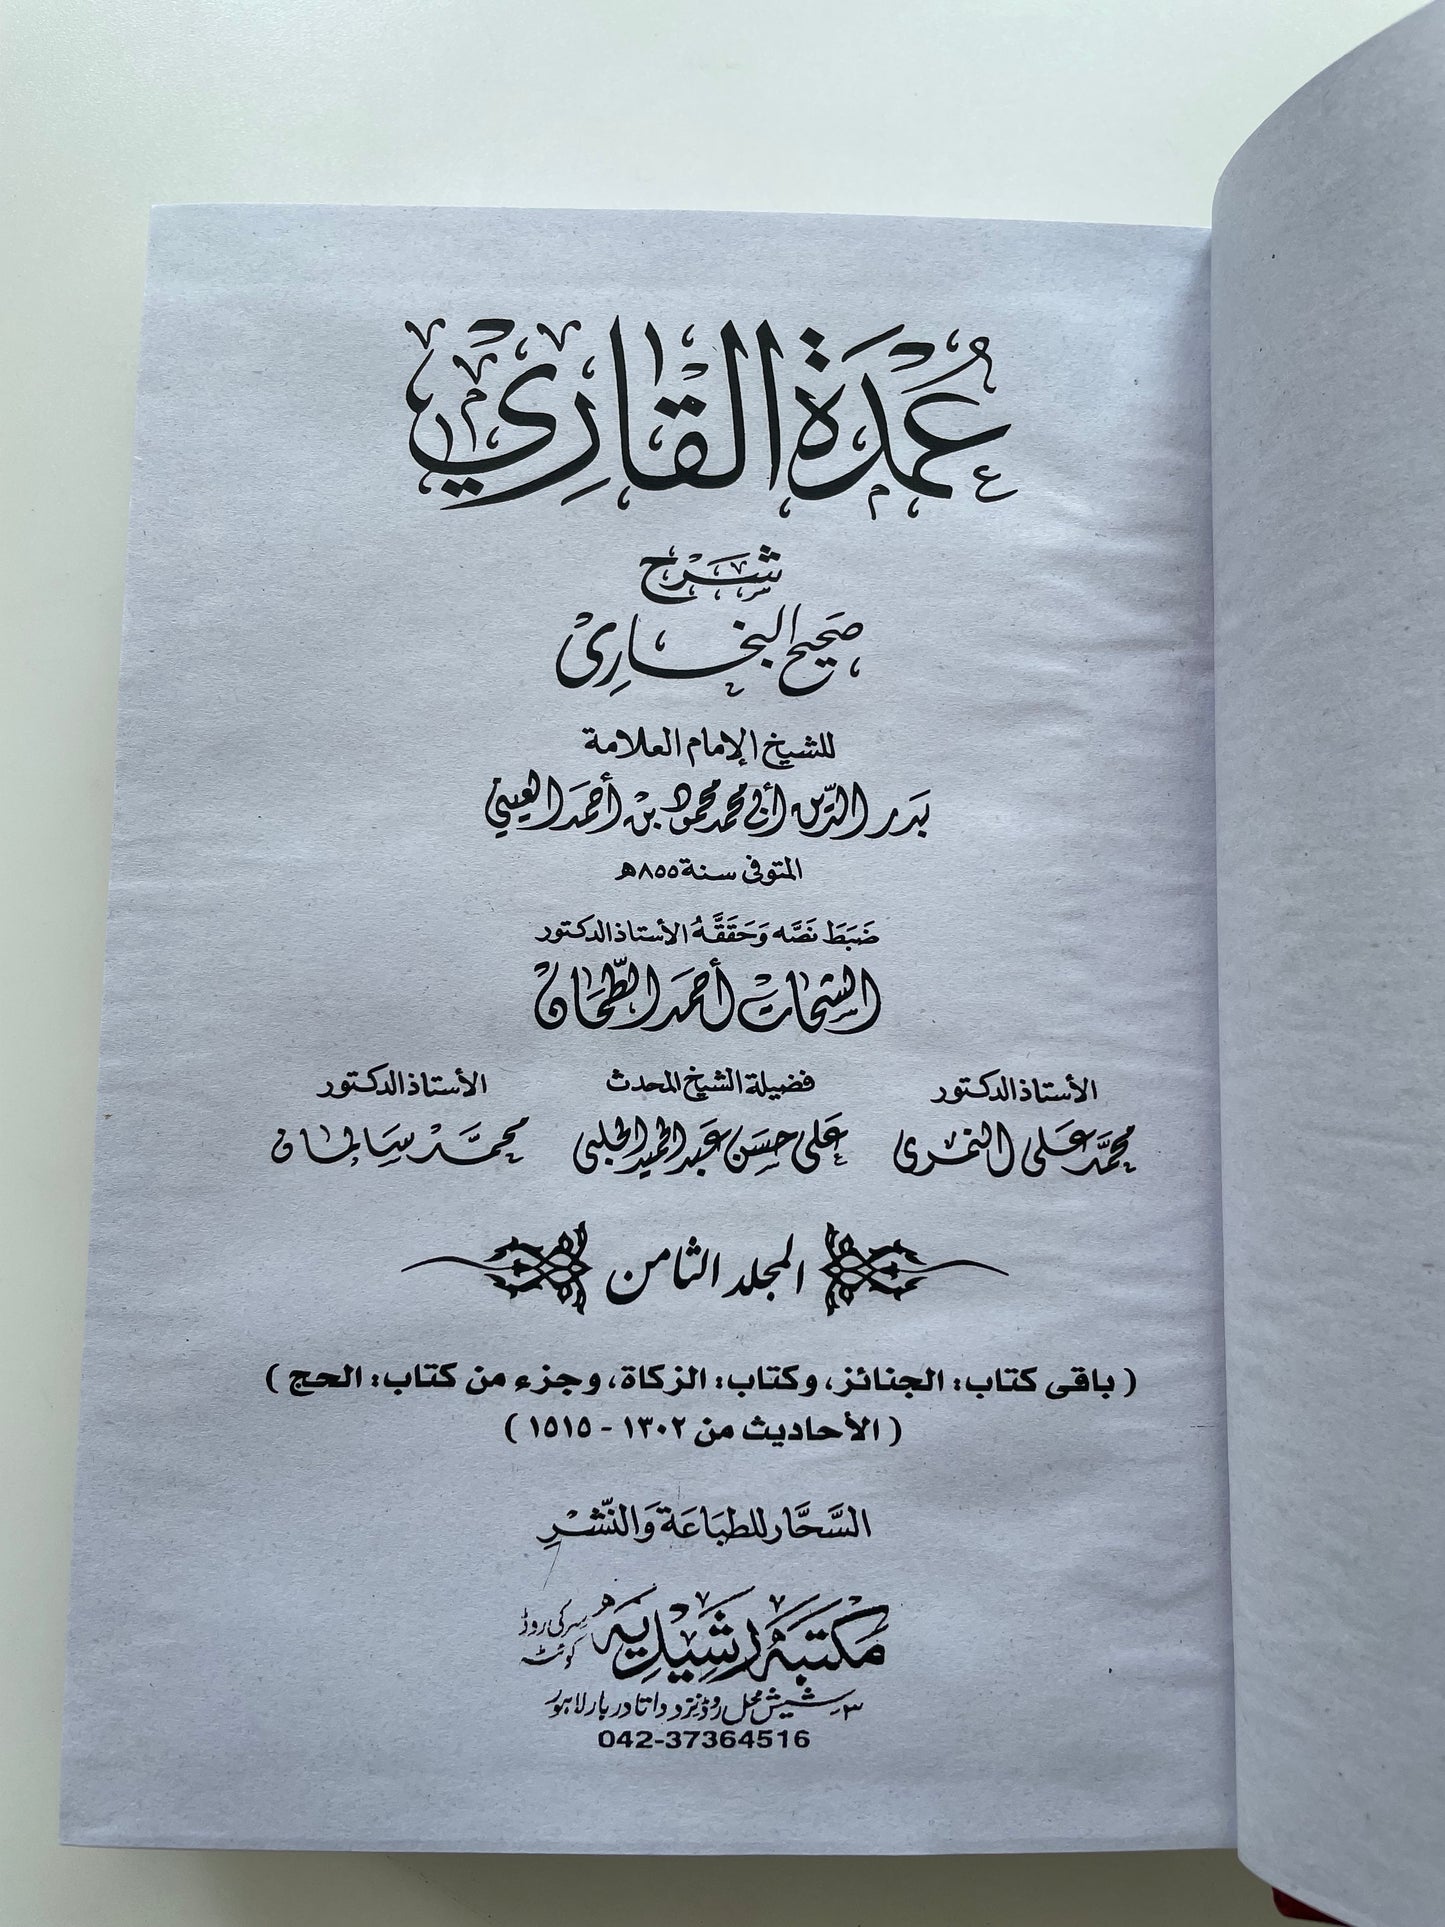 عُمْدَةُ القَارِيّ
شَرْح
صَحِيح البُخَارِيّ
للشيخ الإمام العلامة
بَدر الدِّين أبي محمد محمُود بن أحمَد العيني
المتوفى سنة ٨٥٥هـ
ضَبَطَ نَصَّه وَحَقَّقَهُ الأستاذ الدكتور
الشحات أحمد الطَّحَان
الأستاذ الدكتور فضيلة الشيخ المحدث الأستاذ الدكتور
محمَّد عَلى النمرى عَلى حسَن عَبد الحميد الحلبى محمَّد سَالمان
المجلد الثامن
( باقى كتاب: الجنائز، وكتاب: الزكاة، وجزء من كتاب: الحج )
( الأحاديث من ١٣٠٢ - ١٥١٥ )
السَّحَّار للطبَاعَة وَالنَّشْرِ
مَكتبَه رَشِيْدِيَه سرکی روڈ
کوئٹہ
٣ شیش محل روڈ نزد داتا دربار لاہور
042-37364516